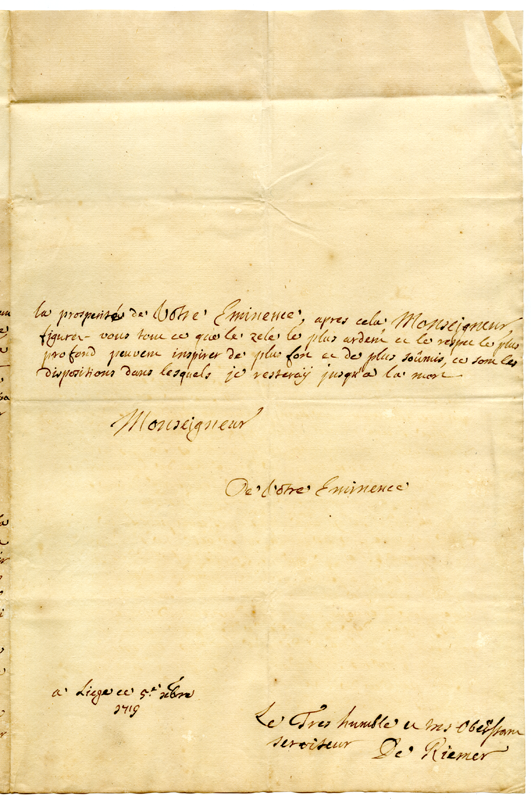 la prosperité de Votre Eminence, apres cela, Monseigneur,
figurez-vous tout ce que le zele le plus ardent et le respec le plus
profond peuvent inspirer de plus fort et de plus soumis, ce sont les
dispositions dans lesquels je resteraÿ jusqu'a la mort
Monseigneur
De Votre Eminence
a Liege ce 5.e
1719
Le Tres humble et tres Obeissant
serviteur De Riemer